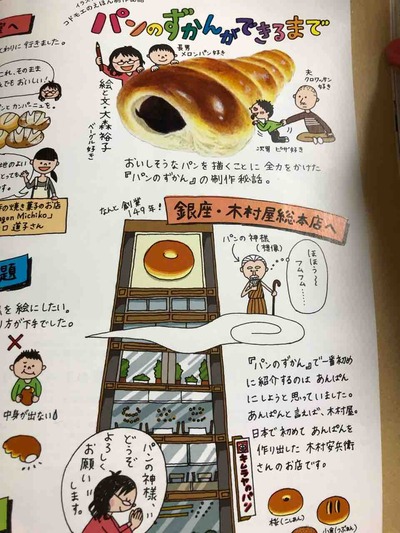 コドモエのえほん制作秘話
パンのずかんができるまで
長男
メロンパン好き
夫
クロワッサン
好き
次男 ピザ好き
絵と文・大森裕子
(ベーグル好き)
おいしそうなパンを描くことに 全力をかけた
『パンのずかん』の制作秘話。
なんと創業
149年!
銀座・木村屋總本店へ
パンの神様
(想像)
ほほう〜
フムフム……
『パンのずかん』で一番初め
に紹介するのは あんぱん
にしようと思っていました。
あんぱんと言えば、木村屋。
日本で初めて あんぱんを
作り出した 木村安兵衛
さんのお店です。
キムラヤのパン
桜(こしあん)
小倉(つぶあん)
パンの神様、
どうぞ
よろしく
お願い
します。
とわりに行きました。
これ、そのまま
でもおいしい!
パンとカンパーニュを。
の焼き菓子のお店
gon Michiko」
口 道子さん
題
を絵にしたい。
り方が下手でした。
中身が出ない